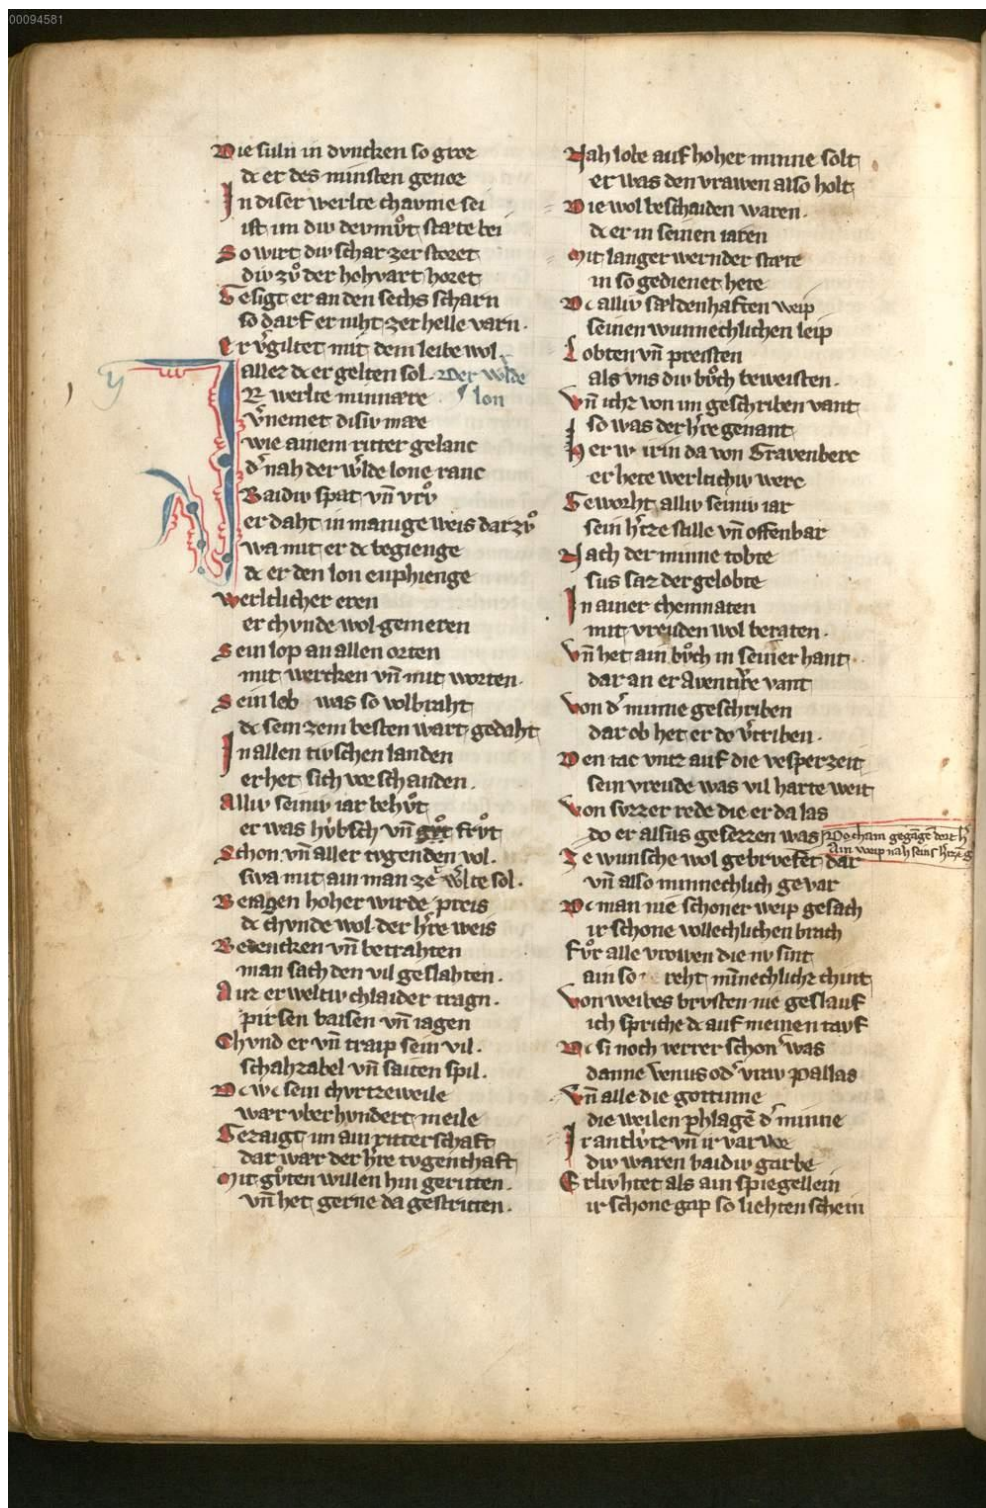 00094581
Die suln in dvncken so groz
dc er des minsten genoz
In diser werlte chavme sei
ist im div devmvͦt stæte bei
So wirt div schar zerstoret
div zvͦ der hohvart horet
Gesigt er an den sechs scharn
so darf er niht zer helle varn.
Er v̓giltet mit dem leibe wol
allez dc er gelten sol. Der w̓lde
lon
IR werlte minnære
v̓nemet disiv mære
wie ainem ritter gelanc
d̓ nah der w̓lde lone ranc
Baidiv spat vn̄ vrvͦ
er daht in manige weis dar zvͦ
wa mit er dc begienge
dc er den lon enphienge
Werltlicher eren
er chvnde wol gemeren
Sein lop an allen orten
mit wercken vn̄ mit worten.
Sein leb was so volbraht
dc sein zem besten wart gedaht
In allen tivschen landen
er het sich vor schanden.
Alliv seiniv iar behvͦt
er was hv̓bsch vn̄ frvͦt
Schon vn̄ aller tvgenden vol.
swa mit ain man ze w̓lte sol.
Beiagen hoher wirde preis
dc chvnde wol der h̓re weis
Bedencken vn̄ betrahten
man sach den vil geslahten.
Avz erweltiv chlaider tragn.
pirsen baisen vn̄ iagen
Chvnd er vn̄ traip sein vil.
schahzabel vn̄ saiten spil.
Dc wc sein chvrtzeweile
wær vber hvndert meile
Gezaigt im ain ritterschaft
dar wær der h̓re tvgenthaft
Mit gvͦten willen hin geritten.
vn̄ het gerne da gestritten.
Nah lobe auf hoher minne solt
er was den vrawen also holt
Die wol beschaiden waren.
dc er in seinen iaren
Mit langer wernder stæte
in so gedienet hete
Dc alliv sældenhaften weip
seinen wunnechlichen leip
Lobten vn̄ preisten
als vns div bvͦch beweisten.
Vn̄ ichz von im geschriben vant
so was der h̓re genant
Her wirin da von Gravenberc
er hete werltlichiv werc
Geworht alliv seiniv iar
sein h̓tze stille vn̄ offenbar
Nach der minne tobte
sus saz der gelobte
In ainer chemnaten
mit vreuden wol beraten.
Vn̄ het ain bvͦch in seiner hant
dar an er Aventiv̓re vant
Von d̓ minne geschriben
dar ob het er do v̓triben.
Den tac vntz auf die vesperzeit
sein vreude was vil harte weit
Von svzzer rede die er da las
do er alsus gesezzen was Do cham gegāgē dort h̓
Ain weip nah seins h̓tzē g
Ze wunsche wol gebrvefet dar
vn̄ also minnechlich gevar
Dc man nie schoner weip gesach
ir schone vollechlichen brach
Fvͤr alle vrowen die nv sint
ain so reht mīnechlichz chint
Von weibes brvsten nie geslauf
ich spriche dc auf meinen tauf
Dc si noch verrer schon̓ was
danne Venus od̓ vraw Pallas
Vn̄ alle die gottinne
die weilen phlagē d̓ minne
Ir antlv̓tz vn̄ ir var vor
div waren baidiv garbe
Erlivhtet als ain spiegellein
ir schone gap so liehten schein